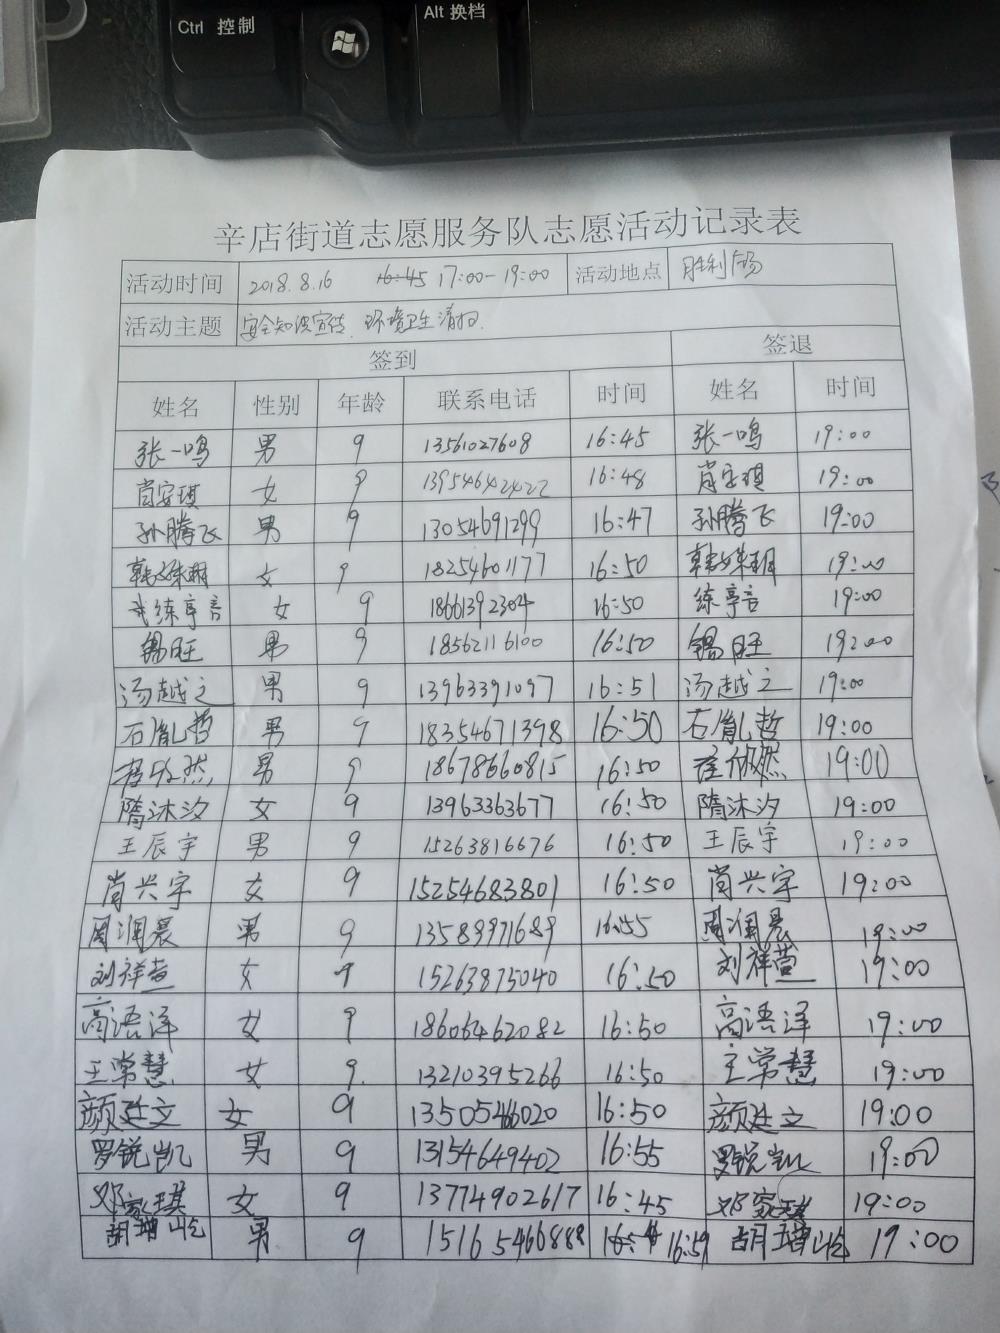 Ctrl 控制
Alt 换档
辛店街道志愿服务队志愿活动记录表
活动时间 2018.8.16 16:45 17:00-19:00 活动地点 胜利广场
活动主题 安全知识宣传、环境卫生清扫.
签到 签退
姓名 性别 年龄 联系电话 时间 姓名 时间
张一鸣 男 9 13561027608 16:45 张一鸣 19:00
肖安琪 女 9 13954642422 16:48 肖安琪 19:00
孙腾飞 男 9 13054691299 16:47 孙腾飞 19:00
韩姝玥 女 9 18254601177 16:50 韩姝玥 19:00
练享言 女 9 18661392304 16:50 练享言 19:00
锡旺 男 9 18562116100 16:50 锡旺 19:00
汤越之 男 9 13963391097 16:51 汤越之 19:00
石胤哲 男 9 18354671398 16:50 石胤哲 19:00
男 9 18678660815 16:50 19:00
隋沐汐 女 9 13963363677 16:50 隋沐汐 19:00
王辰宇 男 9 15263816676 16:50 王辰宇 19:00
肖兴宇 女 9 15254683801 16:50 肖兴宇 19:00
周润晨 男 9 13589971689 16:55 周润晨 19:00
刘祥萱 女 9 15263875040 16:50 刘祥萱 19:00
高语泽 女 9 18606462082 16:50 高语泽 19:00
王常慧 女 9 13210395266 16:50 王常慧 19:00
颜廷文 女 9 13505466020 16:50 颜廷文 19:00
罗锐凯 男 9 13154649402 16:55 罗锐凯 19:00
邓家琪 女 9 13774902617 16:45 邓家琪 19:00
胡增屹 男 9 15165466888 16:59 胡增屹 19:00